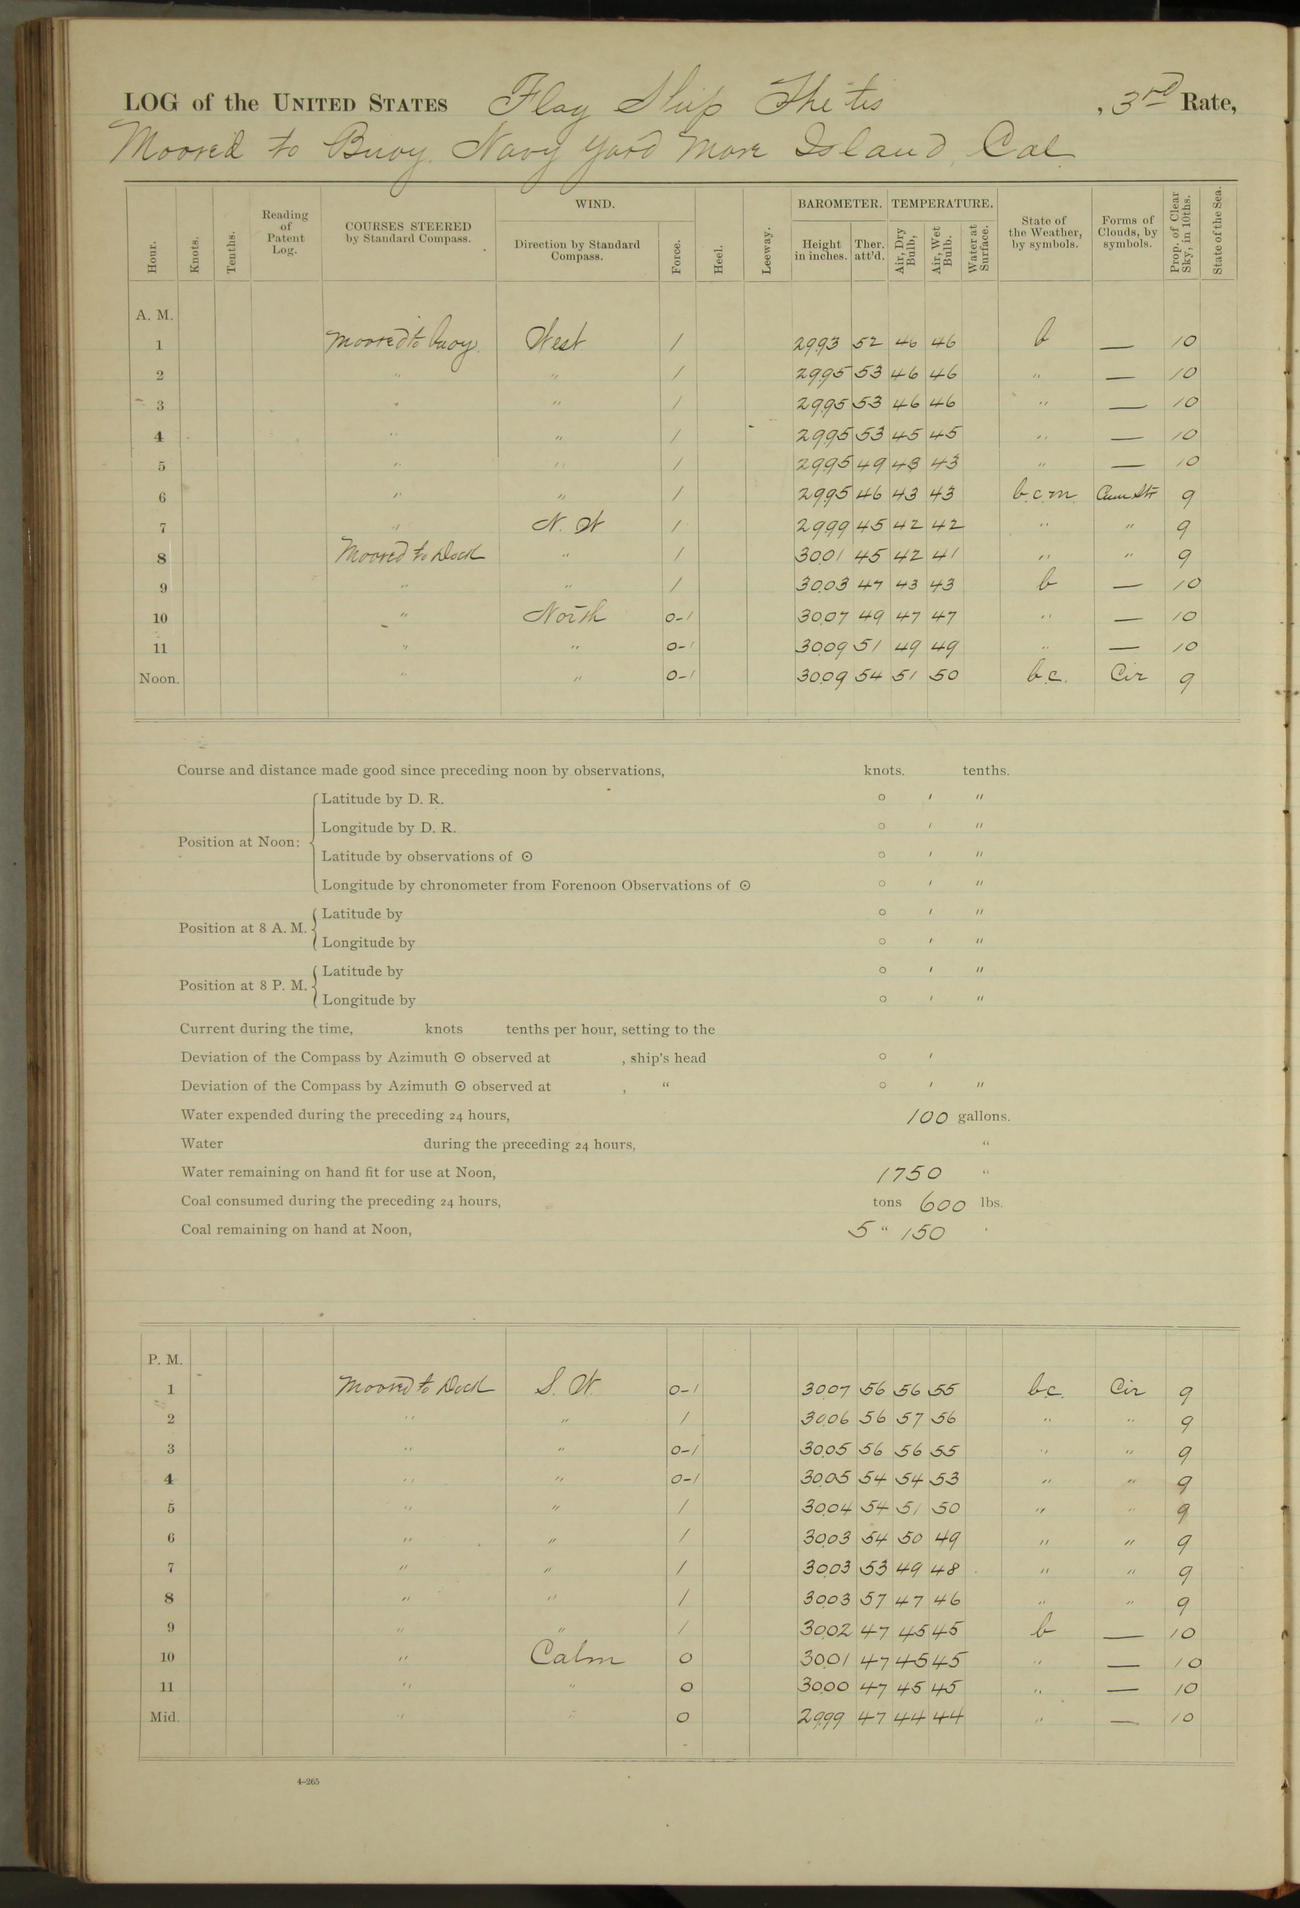 LOG of the UNITED STATES Flag Ship Thetis , 3rd Rate,
Moored to Buoy. Navy Yard Mare Island, Cal.
Hour. Knots. Tenths. Reading of Patent Log. COURSES STEERED by Standard Compass. WIND. Direction by Standard Compass. Force. Heel. Leeway. BAROMETER. Height in inches. Ther. att'd. TEMPERATURE. Air, Dry Bulb, Air, Wet Bulb. Water at Surface. State of the Weather, by symbols. Forms of Clouds, by symbols. Prop. of Clear Sky, in 10ths. State of the Sea.
A. M.
1 Moored to buoy. West 1 29.93 52 46 46 b — 10
2 " " 1 29.95 53 46 46 " — 10
3 " " 1 29.95 53 46 46 " — 10
4 " " 1 29.95 53 45 45 " — 10
5 " " 1 29.95 49 43 43 " — 10
6 " " 1 29.95 46 43 43 b.c.m. Cum Str 9
7 " N. W 1 29.99 45 42 42 " " 9
8 Moored to Dock " 1 30.01 45 42 41 " " 9
9 " " 1 30.03 47 43 43 b — 10
10 " North 0-1 30.07 49 47 47 " — 10
11 " " 0-1 30.09 51 49 49 " — 10
Noon. " " 0-1 30.09 54 51 50 b.c. Cir 9
Course and distance made good since preceding noon by observations, knots. tenths.
Position at Noon:
Latitude by D. R. ° ′ ″
Longitude by D. R. ° ′ ″
Latitude by observations of ⊙ ° ′ ″
Longitude by chronometer from Forenoon Observations of ⊙ ° ′ ″
Position at 8 A. M.
Latitude by ° ′ ″
Longitude by ° ′ ″
Position at 8 P. M.
Latitude by ° ′ ″
Longitude by ° ′ ″
Current during the time, knots tenths per hour, setting to the
Deviation of the Compass by Azimuth ⊙ observed at , ship's head ° ′
Deviation of the Compass by Azimuth ⊙ observed at , “ ° ′ ″
Water expended during the preceding 24 hours, 100 gallons.
Water during the preceding 24 hours, “
Water remaining on hand fit for use at Noon, 1750 “
Coal consumed during the preceding 24 hours, tons 600 lbs.
Coal remaining on hand at Noon, 5 “ 150 "
P. M.
1 Moored to Dock S. W. 0-1 30.07 56 56 55 b.c. Cir 9
2 " " 1 30.06 56 57 56 " " 9
3 " " 0-1 30.05 56 56 55 " " 9
4 " " 0-1 30.05 54 54 53 " " 9
5 " " 1 30.04 54 51 50 " " 9
6 " " 1 30.03 54 50 49 " " 9
7 " " 1 30.03 53 49 48 " " 9
8 " " 1 30.03 57 47 46 " " 9
9 " " 1 30.02 47 45 45 b — 10
10 " Calm 0 30.01 47 45 45 " — 10
11 " " 0 30.00 47 45 45 " — 10
Mid. " " 0 29.99 47 44 44 " — 10
4–265